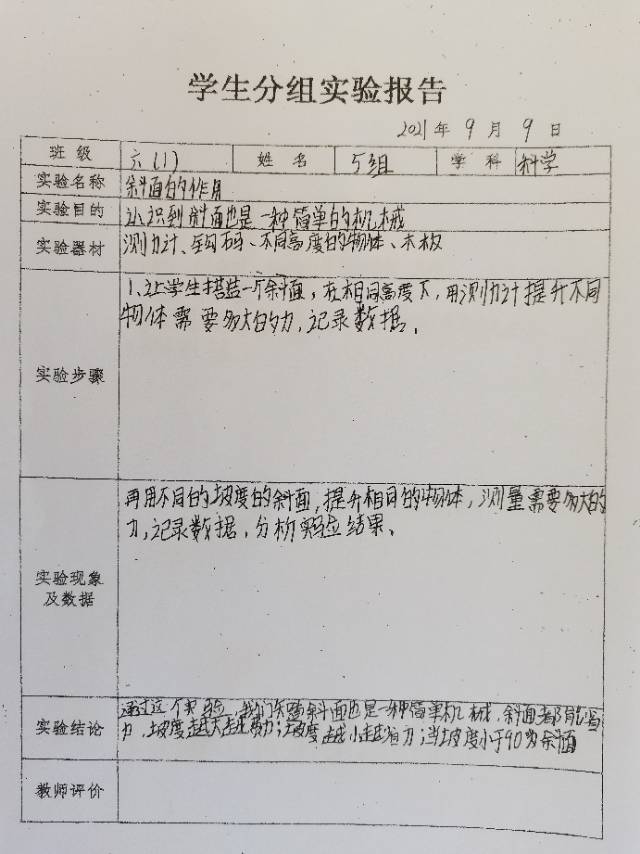 学生分组实验报告
2021年 9 月 9 日
班级 六(1) 姓名 5组 学科 科学
实验名称 斜面的作用
实验目的 认识到斜面也是一种简单的机械
实验器材 测力计、钩码、不同高度的物体、木板
1、让学生搭建一个斜面,在相同高度下,用测力计提升不同
物体需要多大的力,记录数据。
实验步骤
再用不同的坡度的斜面,提升相同的物体,测量需要多大的
力,记录数据,分析实验结果。
实验现象
及数据
通过这个实验,我们知道斜面也是一种简单机械,斜面都能省
实验结论 力,坡度越大越费力;坡度越小越省力;当坡度小于90为斜面
教师评价